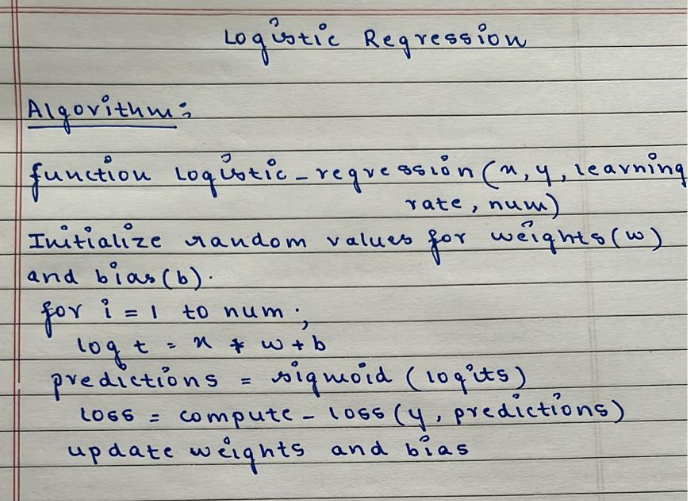 Logistic Regression
Algorithm:
function logistic_regression(x, y, learning
rate, num)
Initialize random values for weights(w)
and bias(b).
for i = 1 to num;
log t = x * w + b
predictions = sigmoid (logits)
loss = compute_loss(y, predictions)
update weights and bias